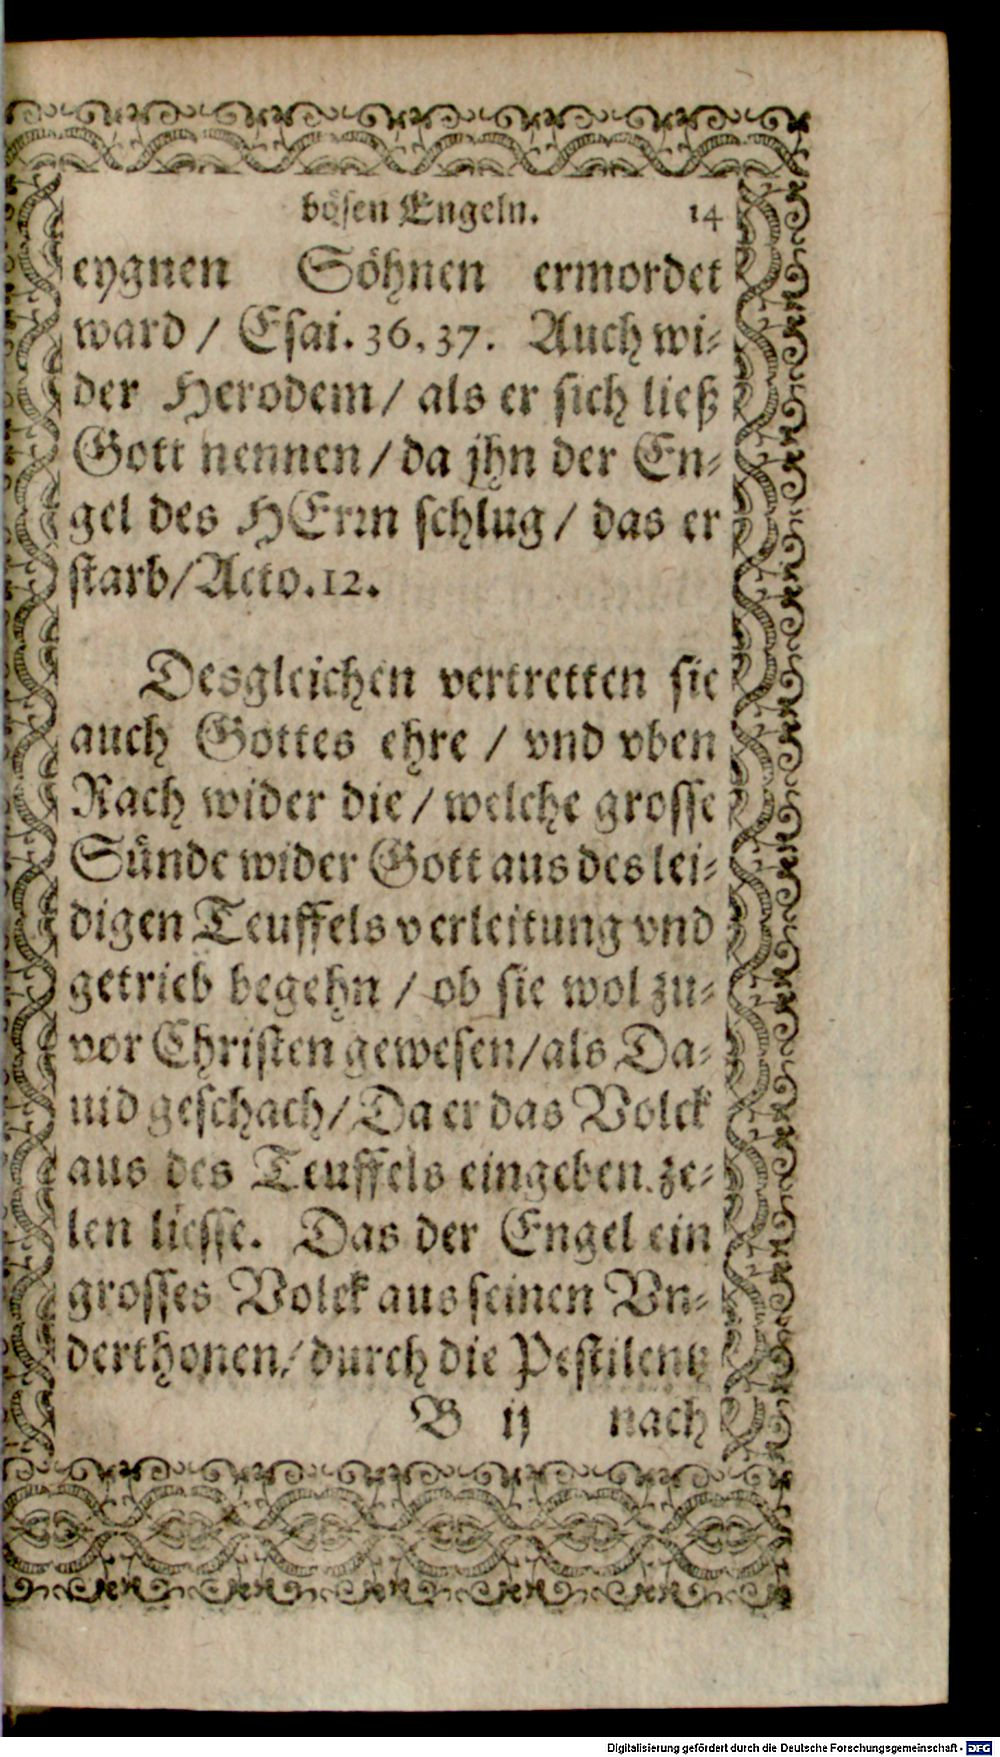 bösen Engeln. 14
eygnen Söhnen ermordet
ward / Esai. 36. 37. Auch wi-
der Herodem / als er sich ließ
Gott nennen / da jhn der En-
gel des HErrn schlug / das er
starb / Acto. 12.
Desgleichen vertretten sie
auch Gottes ehre / vnd vben
Rach wider die / welche grosse
Sünde wider Gott aus des lei-
digen Teuffels verleitung vnd
getrieb begehn / ob sie wol zu-
vor Christen gewesen / als Da-
uid geschach / Da er das Volck
aus des Teuffels eingeben. ze-
len liesse. Das der Engel ein
grosses Volck aus seinen Vn-
derthonen / durch die Pestilentz
B ij nach
Digitalisierung gefördert durch die Deutsche Forschungsgemeinschaft - DFG